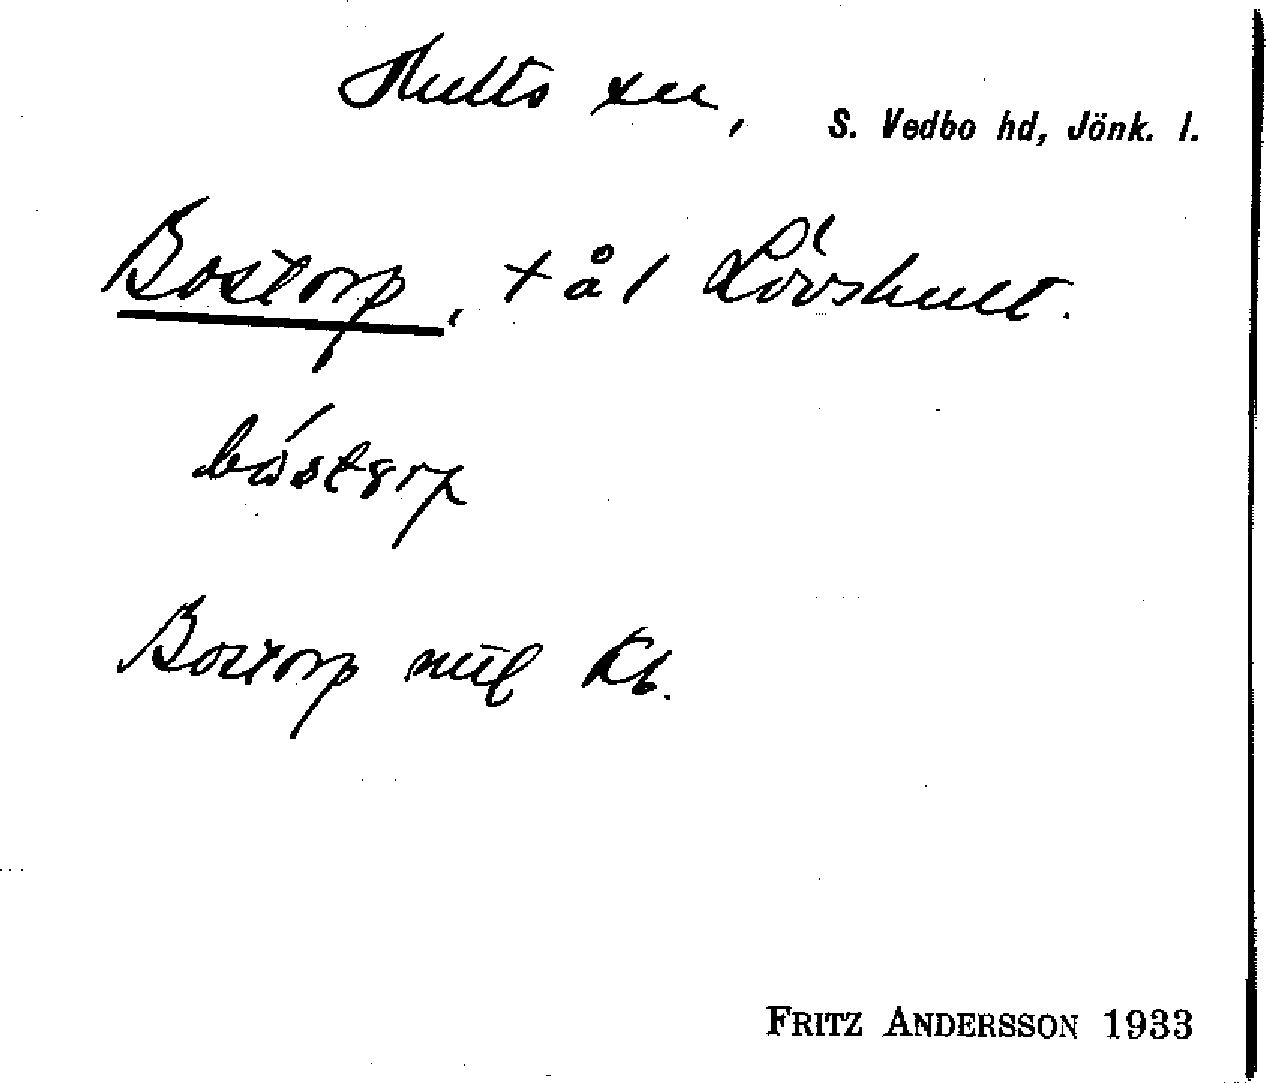 Hults sn, S. Vedbo hd, Jönk. l.
Bostorp, t å / Lövshult.
bóstorp
Bostorp mtl Kb.
FRITZ ANDERSSON 1933